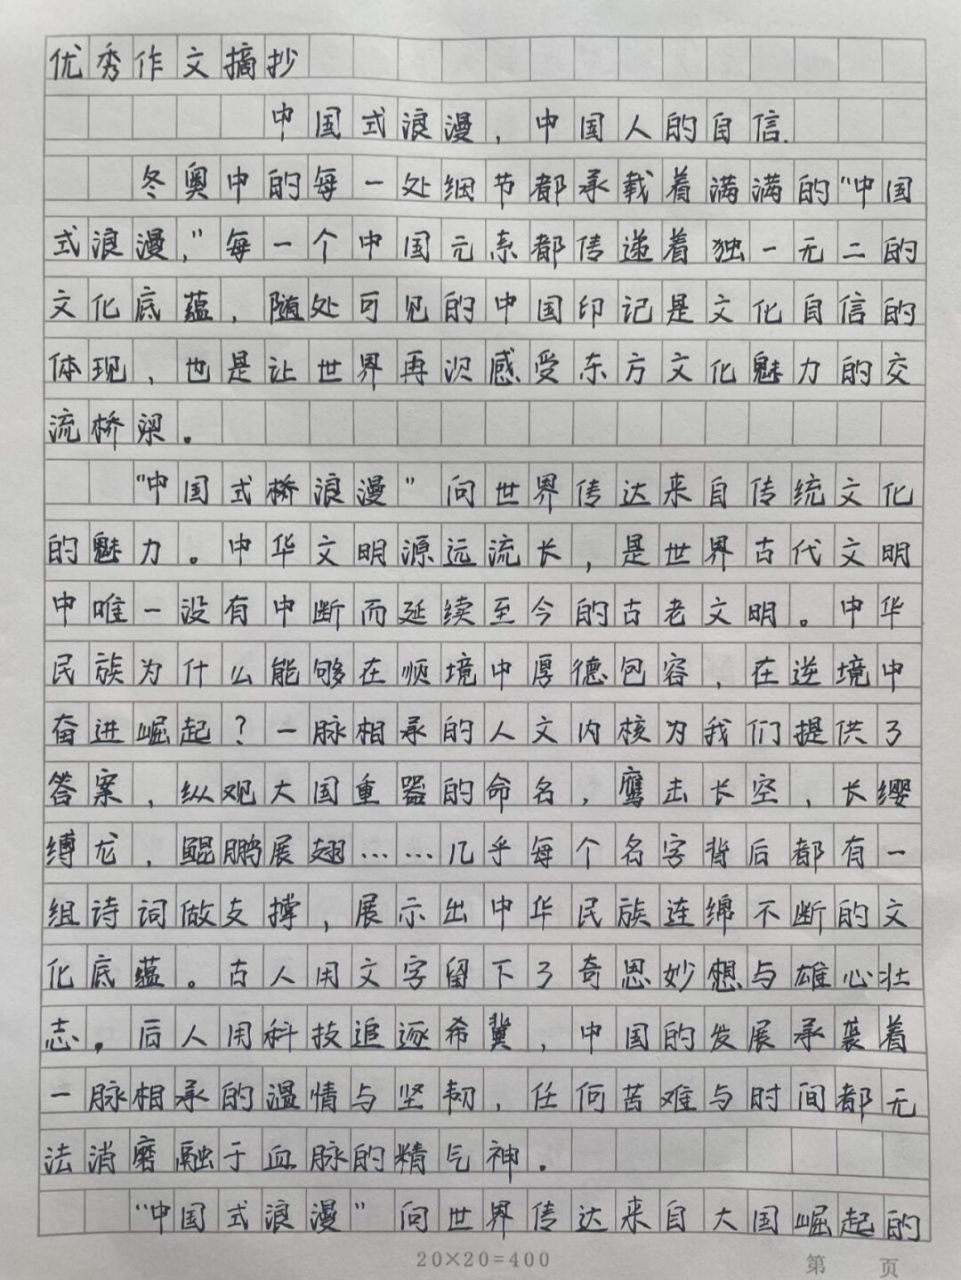 优秀作文摘抄
中国式浪漫，中国人的自信.
冬奥中的每一处细节都承载着满满的“中国
式浪漫，”每一个中国元素都传递着独一无二的
文化底蕴，随处可见的中国印记是文化自信的
体现，也是让世界再次感受东方文化魅力的交
流桥梁。
“中国式桥浪漫”向世界传达来自传统文化
的魅力。中华文明源远流长，是世界古代文明
中唯一没有中断而延续至今的古老文明。中华
民族为什么能够在顺境中厚德包容，在逆境中
奋进崛起？一脉相承的人文内核为我们提供了
答案，纵观大国重器的命名，鹰击长空，长缨
缚龙，鲲鹏展翅……几乎每个名字背后都有一
组诗词做支撑，展示出中华民族连绵不断的文
化底蕴。古人用文字留下了奇思妙想与雄心壮
志。后人用科技追逐希冀，中国的发展承袭着
一脉相承的温情与坚韧，任何苦难与时间都无
法消磨融于血脉的精气神。
“中国式浪漫”向世界传达来自大国崛起的
20×20=400
第 页